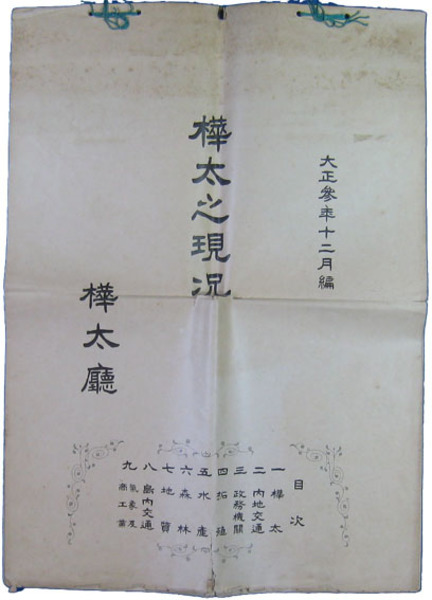 大正參年十二月編
樺太之現況
樺太廳
目次
一 樺太
二 内地交通
三 政務機關
四 拓殖
五 水產
六 森林
七 地質
八 島内交通
九 氣象及商工業